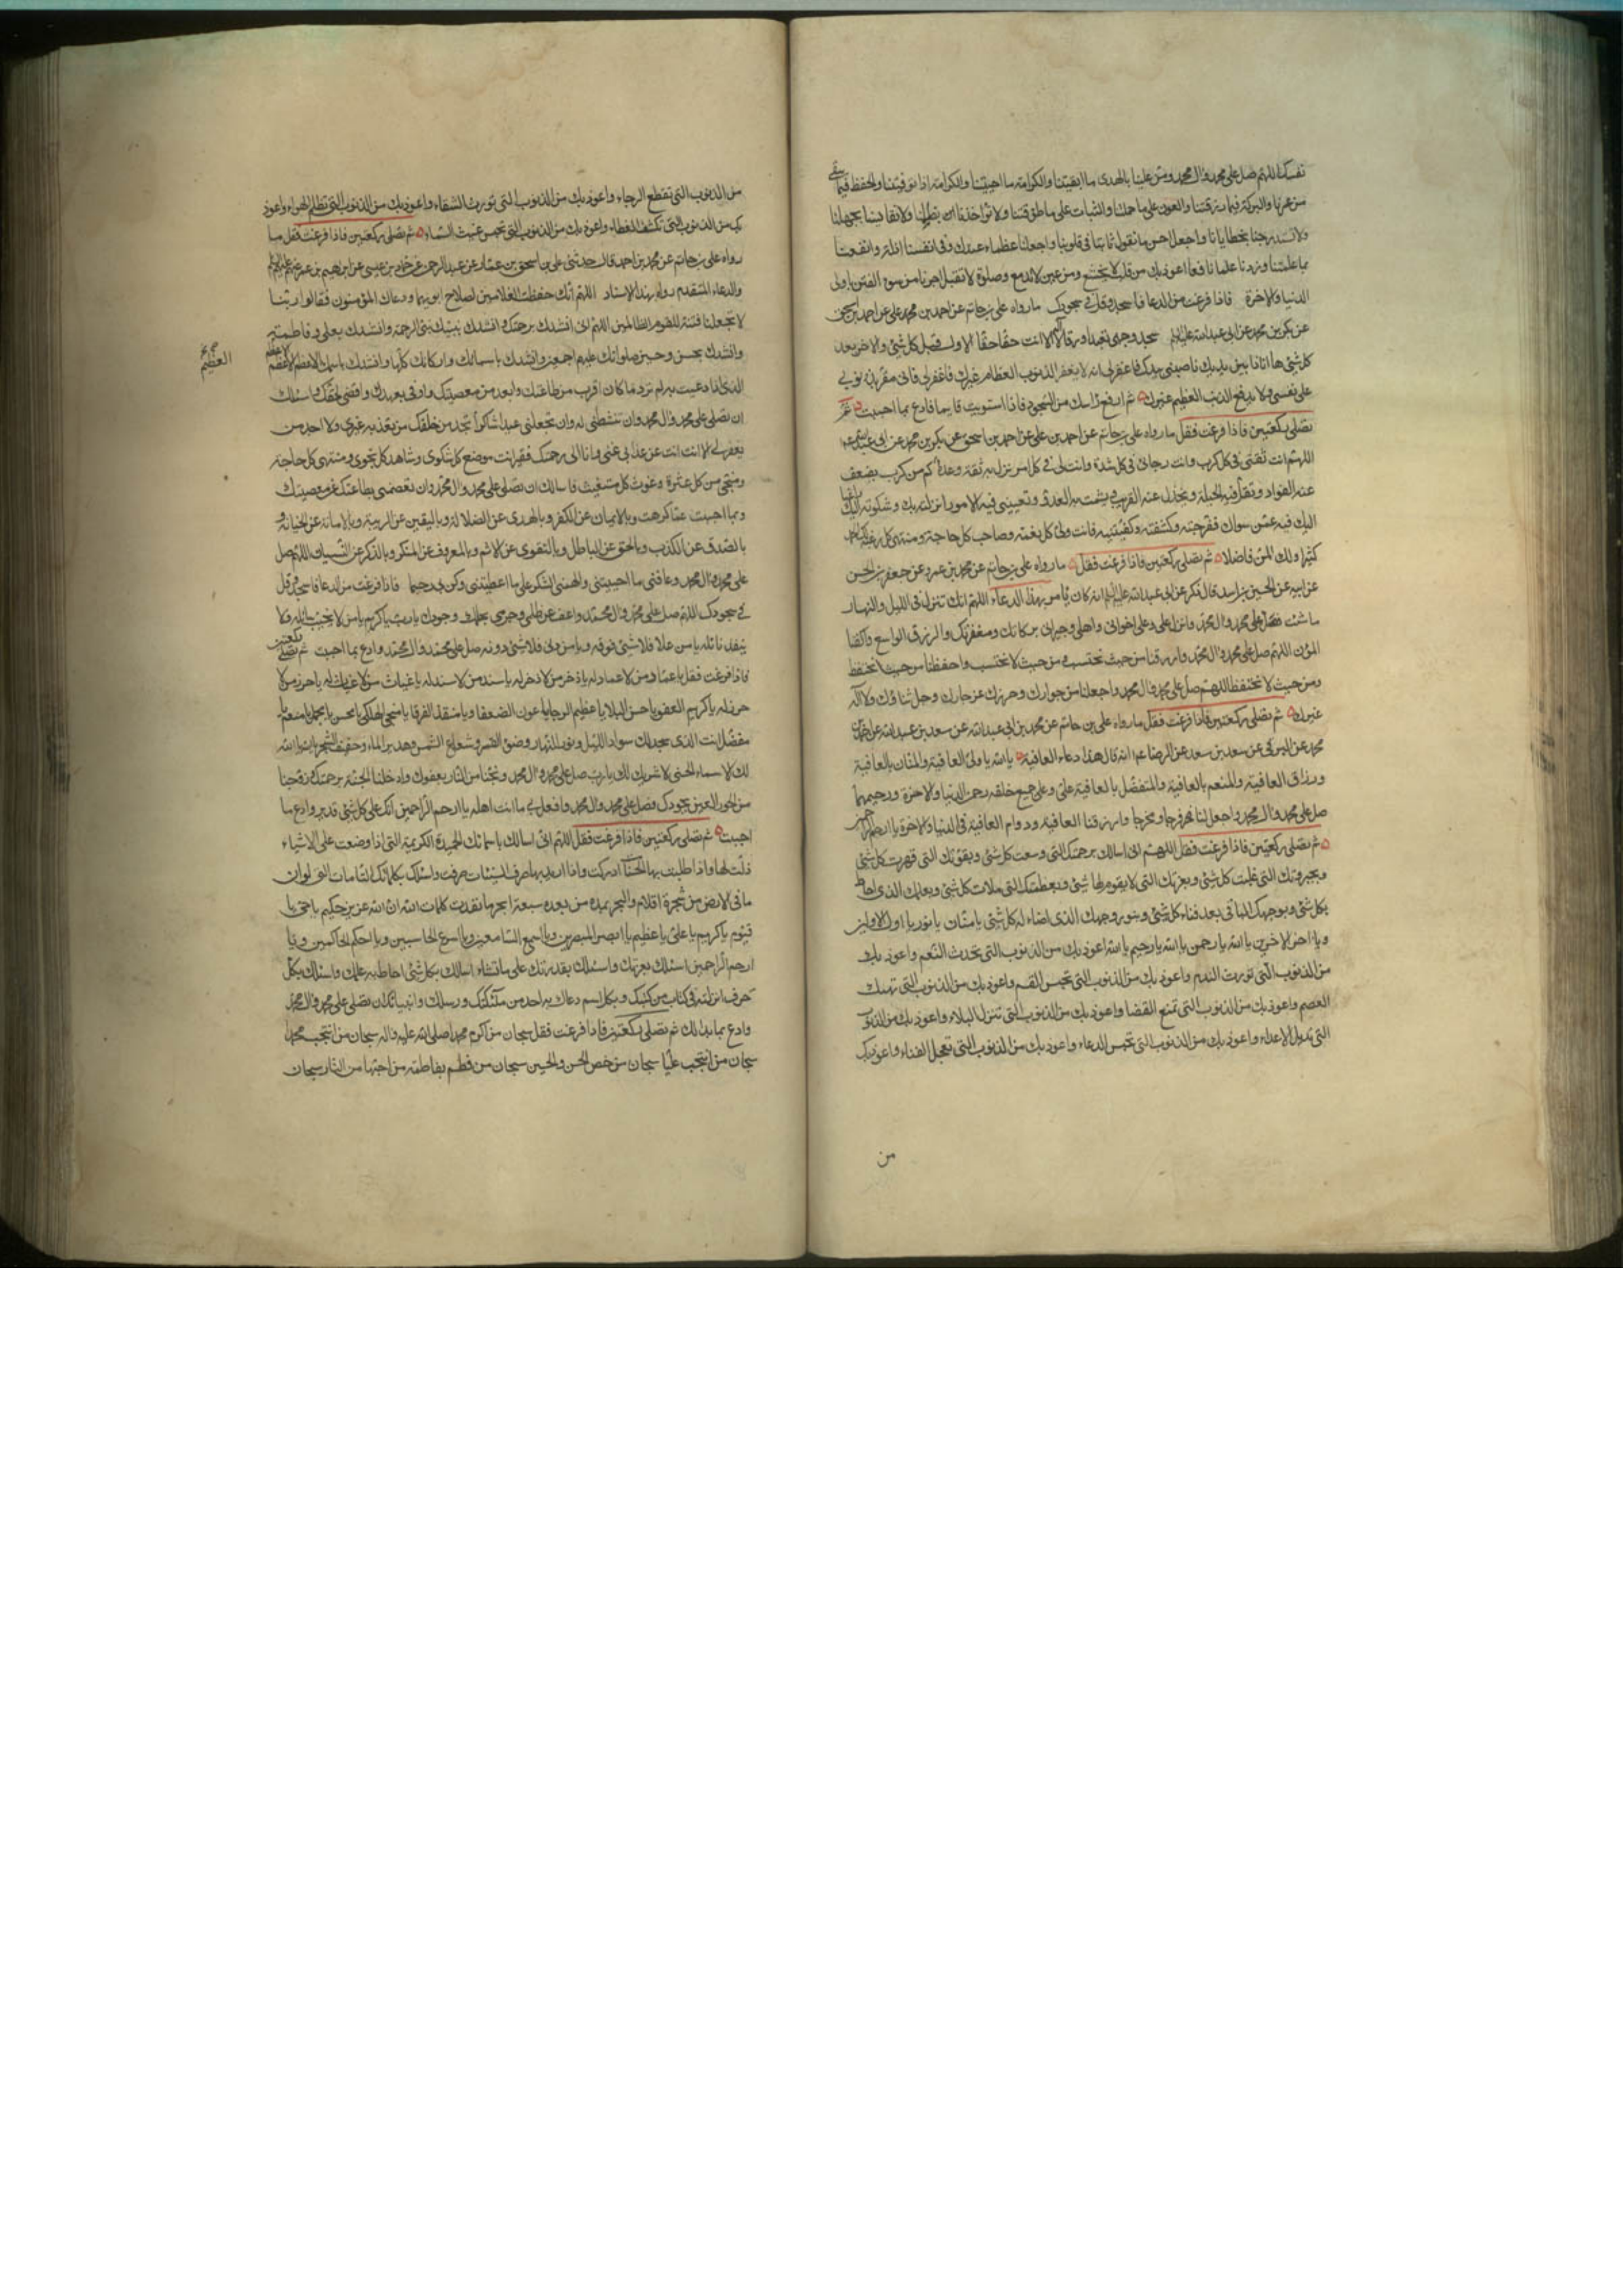 نفسك اللهم صل على محمد وال محمد ومن علينا بالهدى ما ابقيتنا والكرامة ما احييتنا والكرامة اذا توفيتنا والحفظ فيما بقى
من عمرنا والبركة فيما رزقتنا والعون على ما حملتنا والثبات على ما طوقتنا ولا تؤاخذنا بظلمنا ولا تقايسنا بجهلنا
ولا تستدرجنا بخطايانا واجعل احسن ما نقول ثابتا في قلوبنا واجعلنا عظماء عندك وفي انفسنا اذلة وانفعنا
بما علمتنا وزدنا علما نافعا اعوذ بك من قلب لا يخشع ومن عين لا تدمع وصلوة لا تقبل اجرنا من سوء الفتن يا ولى
الدنيا والاخرة فاذا فرغت من الدعا فاسجد وقل في سجودك ما رواه على بن حاتم عن احمد بن محمد على عن احمد بن اسحق
عن بكر بن محمد عن ابى عبد الله عليه السلام سجد وجهى تعبدا ورقا لا اله الا انت حقا حقا الاول قبل كل شئ والاخر بعد
كل شئ ها انا ذا بين يديك ناصيتى بيدك فاغفر لى انه لا يغفر الذنوب العظام غيرك فاغفر لى فانى مقر بذنوبى
على نفسى ولا يدفع الذنب العظيم غيرك ثم ارفع راسك من السجود فاذا استويت قايما فادع بما احببت ثم
تصلى ركعتين فاذا فرغت فقل ما رواه على بن حاتم عن احمد بن على عن احمد بن اسحق عن بكر بن محمد عن ابى عبد الله
اللهم انت ثقتى فى كل كرب وانت رجائى فى كل شدة وانت لى فى كل امر نزل بى ثقة وعدة كم من كرب يضعف
عنه الفواد وتقل فيه الحيلة ويخذل عنه القريب ويشمت به العدو وتعيينى فيه الامور انزلته بك وشكوته اليك راغبا
اليك فيه عمن سواك ففرجته وكشفته وكفيتنيه فانت ولى كل نعمة وصاحب كل حاجة ومنتهى كل رغبة لك الحمد
كثيرا ولك المن فاضلا ثم تصلى ركعتين فاذا فرغت فقل ما رواه على بن حاتم عن محمد بن عمرو عن جعفر بن الحسن
عن ابيه عن الحسين بن راشد قال ذكر عن ابى عبد الله عليه السلام انه كان يأمر بهذا الدعاء اللهم انك تنزل فى الليل والنهار
ما شئت فصل على محمد وال محمد وانزل على وعلى اخوانى واهلى وجيرانى بركاتك ومغفرتك والرزق الواسع واكفنا
المؤن اللهم صل على محمد وال محمد وارزقنا من حيث نحتسب ومن حيث لا نحتسب واحفظنا من حيث نحتفظ
ومن حيث لا نحتفظ اللهم صل على محمد وال محمد واجعلنا من جوارك وحرزك عز جارك وجل ثناؤك ولا اله
غيرك ثم تصلى ركعتين فاذا فرغت فقل ما رواه على بن حاتم عن محمد بن ابى عبد الله عن سعد بن عبد الله عن
محمد عن البرقى عن سعد بن سعد عن الرضا عم انه قال هذا دعاء العافية يا الله يا ولى العافية والمنان بالعافية
ورزاق العافية والمنعم بالعافية والمتفضل بالعافية على وعلى جميع خلقه رحمن الدنيا والاخرة ورحيمهما
صل على محمد وال محمد واجعل لنا فرجا ومخرجا وارزقنا العافية ودوام العافية فى الدنيا والاخرة يا ارحم الراحمين
ثم تصلى ركعتين فاذا فرغت فقل اللهم انى اسالك برحمتك التى وسعت كل شئ وبقوتك التى قهرت كل شئ
وبجبروتك التى غلبت كل شئ وبعزتك التى لا يقوم لها شئ وبعظمتك التى ملات كل شئ وبعلمك الذى احاط
بكل شئ وبوجهك الباقى بعد فناء كل شئ وبنور وجهك الذى اضاء له كل شئ يا منان يا نور يا اول الاولين
ويا اخر الاخرين يا الله يا رحمن يا الله يا رحيم يا الله اعوذ بك من الذنوب التى تحدث النقم واعوذ بك
من الذنوب التى تورث الندم واعوذ بك من الذنوب التى تحبس القسم واعوذ بك من الذنوب التى تهتك
العصم واعوذ بك من الذنوب التى تمنع القضا واعوذ بك من الذنوب التى تنزل البلاء واعوذ بك من الذنوب
التى تديل الاعداء واعوذ بك من الذنوب التى تحبس الدعاء واعوذ بك من الذنوب التى تعجل الفناء واعوذ بك
من
من الذنوب التى تقطع الرجاء واعوذ بك من الذنوب التى تورث الشقاء واعوذ بك من الذنوب التى تظلم الهواء واعوذ
بك من الذنوب التى تكشف الغطاء واعوذ بك من الذنوب التى تحبس غيث السماء ثم تصلى ركعتين فاذا فرغت فقل ما
رواه على بن حاتم عن محمد بن احمد قال حدثنى على بن اسحق بن عمار عن عبد الرحمن عن حماد بن عيسى عن ابرهيم بن عمر
والدعاء المتقدم رواه بهذا الاسناد اللهم انك حفظت الغلامين لصلاح ابويهما ودعاك المؤمنون فقالوا ربنا
لا تجعلنا فتنة للقوم الظالمين اللهم انى انشدك برحمتك وانشدك بنبيك نبى الرحمة وانشدك بعلى وفاطمة
وانشدك بحسن وحسين صلواتك عليهم اجمعين وانشدك باسمائك واركانك كلها وانشدك باسمك الاعظم الاعظم الاعظم
العظيم
الذى اذا دعيت به لم ترد ما كان اقرب من طاعتك وابعد من معصيتك واوفى بعهدك واقضى لحقك واسئلك
ان تصلى على محمد وال محمد وان تنشطنى له وان تجعلنى عبدا شاكرا تجد من خلقك من تعذبه غيرى ولا اجد من
يغفر لى الا انت انت عن عذابى غنى وانا الى رحمتك فقير انت موضع كل شكوى وشاهد كل نجوى ومنتهى كل حاجة
ومنجى من كل عثرة وغوث كل مستغيث فاسالك ان تصلى على محمد وال محمد وان تعصمنى بطاعتك عن معصيتك
وبما احببت عما كرهت وبالايمان عن الكفر وبالهدى عن الضلالة وباليقين عن الريبة وبالامانة عن الخيانة و
بالصدق عن الكذب وبالحق عن الباطل وبالتقوى عن الاثم وبالمعروف عن المنكر وبالذكر عن النسيان اللهم صل
على محمد وال محمد وعافنى ما احييتنى والهمنى الشكر على ما اعطيتنى وكن بى رحيما فاذا فرغت من الدعا فاسجد وقل
فى سجودك اللهم صل على محمد وال محمد واعف عن ظلمى وجرمى بحلمك وجودك يا رب يا كريم يا من لا يخيب سائله ولا
ينفد نائله يا من علا فلا شئ فوقه ويا من دنى فلا شئ دونه صل على محمد وال محمد وادع بما احببت ثم تصلى ركعتين
فاذا فرغت فقل يا عماد من لا عماد له يا ذخر من لا ذخر له يا سند من لا سند له يا غياث من لا غياث له يا حرز من لا
حرز له يا كريم العفو يا حسن البلا يا عظيم الرجا يا عون الضعفا ويا منقذ الغرقا يا منجى الهلكى يا محسن يا مجمل يا منعم يا
مفضل انت الذى سجد لك سواد الليل ونور النهار وضوء القمر وشعاع الشمس وهدير الماء وحفيف الشجر يا الله يا الله
لك الاسماء الحسنى لا شريك لك يا رب صل على محمد وال محمد ونجنا من النار بعفوك وادخلنا الجنة برحمتك وزوجنا
من الحور العين بجودك فصل على محمد وال محمد وافعل بى ما انت اهله يا ارحم الراحمين انك على كل شئ قدير وادع بما
احببت ثم تصلى ركعتين فاذا فرغت فقل اللهم انى اسالك باسمائك الحميدة الكريمة التى اذا وضعت على الاشياء
ذلت لها واذا طلبت بها الحسنات ادركت واذا اريد بها صرف السيئات صرفت واسئلك بكلماتك التامات التى لو ان
ما فى الارض من شجرة اقلام والبحر يمده من بعده سبعة ابحر ما نفدت كلمات الله ان الله عزيز حكيم يا حى يا
قيوم يا كريم يا على يا عظيم يا ابصر المبصرين ويا اسمع السامعين ويا اسرع الحاسبين ويا احكم الحاكمين ويا
ارحم الراحمين اسئلك بعزتك واسئلك بقدرتك على ما تشاء اسالك بكل شئ احاط به علمك واسئلك بكل
حرف انزلته فى كتاب من كتبك وبكل اسم دعاك به احد من ملئكتك ورسلك وانبيائك ان تصلى على محمد وال محمد
وادع بما بدا لك ثم تصلى ركعتين فاذا فرغت فقل سبحان من اكرم محمدا صلى الله عليه واله سبحان من انتجب محمدا
سبحان من انتجب عليا سبحان من خص الحسن والحسين سبحان من فطم بفاطمة من احبها من النار سبحان